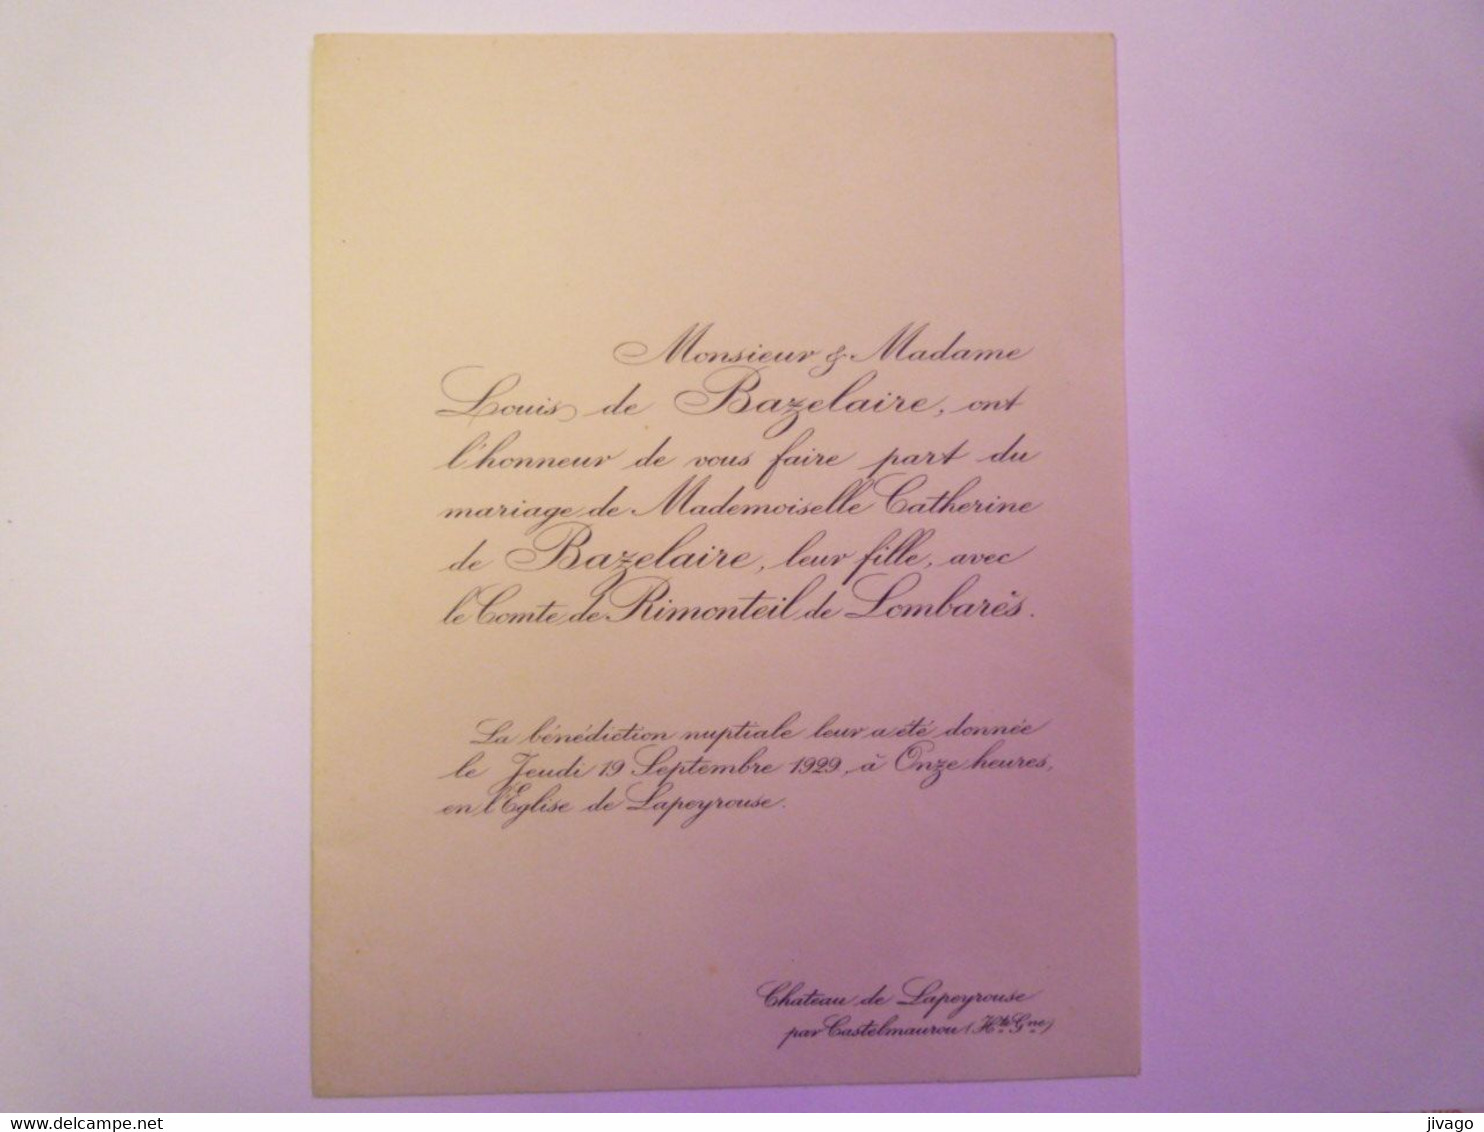 Monsieur & Madame
Louis de Bazelaire, ont
l'honneur de vous faire part du
mariage de Mademoiselle Catherine
de Bazelaire, leur fille, avec
le Comte de Rimonteil de Lombarès.
La bénédiction nuptiale leur a été donnée
le Jeudi 19 Septembre 1929, à Onze heures,
en l'Eglise de Lapeyrouse.
Chateau de Lapeyrouse
par Castelmaurou (Hte Gne)
delcampe.net
jivago